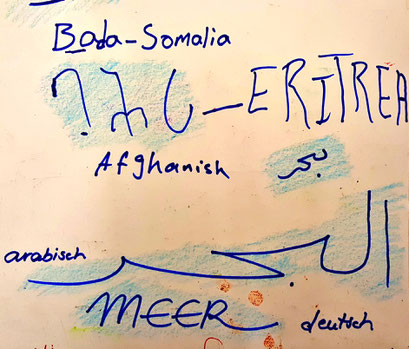 Bada-Somalia
-ERITREA
Afghanish بحر
arabisch البحر
MEER deutsch